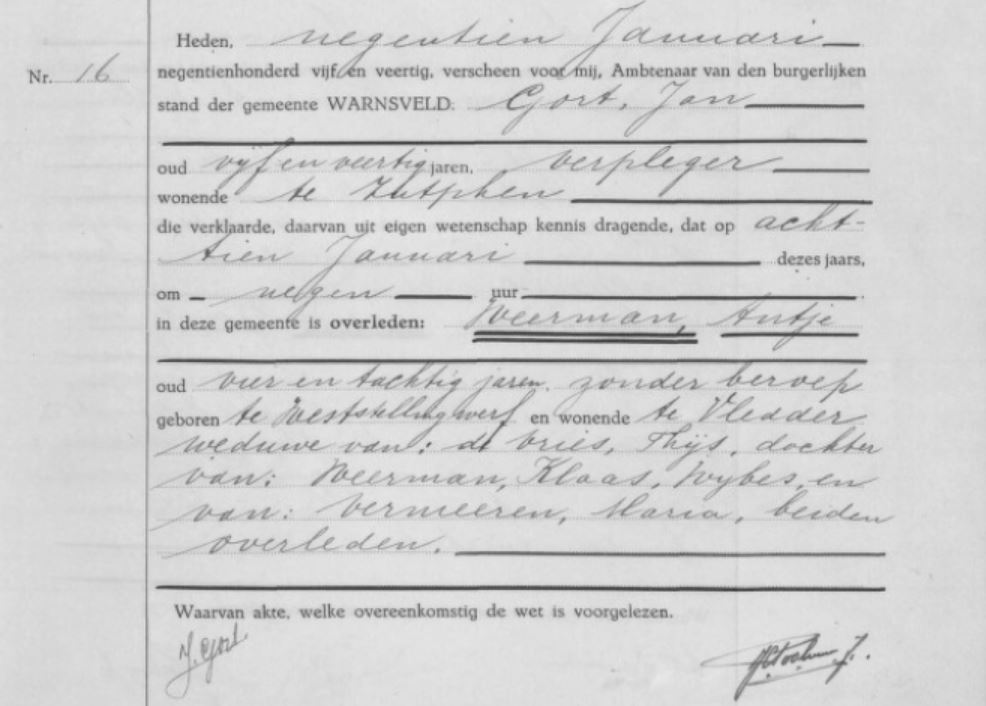 Heden, negentien Januari
Nr. 16 negentienhonderd vijf en veertig, verscheen voor mij, Ambtenaar van den burgerlijken
stand der gemeente WARNSVELD: Gort, Jan
oud vijf en veertig jaren, verpleger
wonende te Zutphen
die verklaarde, daarvan uit eigen wetenschap kennis dragende, dat op acht-
tien Januari dezes jaars,
om negen uur
in deze gemeente is overleden: Weerman, Antje
oud vier en tachtig jaren, zonder beroep
geboren te Weststellingwerf en wonende te Vledder
weduwe van: de Vries, Thijs, dochter
van: Weerman, Klaas, Wybes, en
van: Vermeeren, Maria, beiden
overleden.
Waarvan akte, welke overeenkomstig de wet is voorgelezen.
J. Gort.